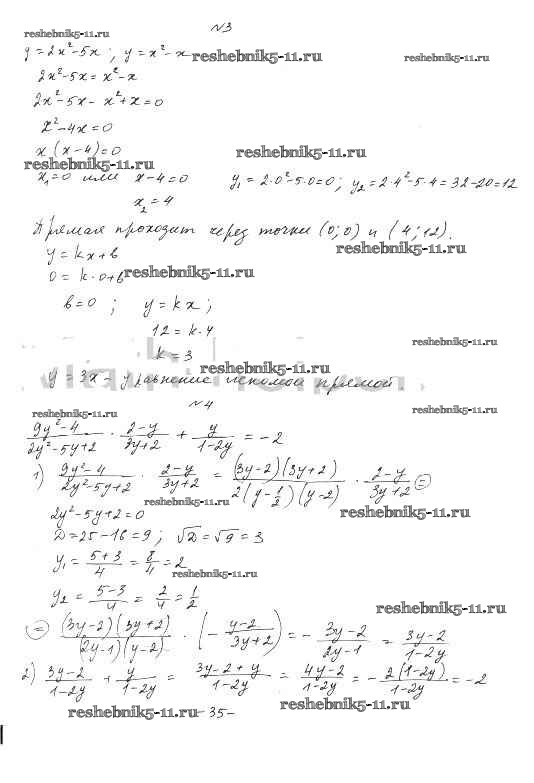 №3
reshebnik5-11.ru
y=2x²-5x; y=x²-x reshebnik5-11.ru reshebnik5-11.ru
2x²-5x=x²-x
2x²-5x-x²+x=0
x²-4x=0
x(x-4)=0 reshebnik5-11.ru
reshebnik5-11.ru
x₁=0 или x-4=0 y₁=2·0²-5·0=0; y₂=2·4²-5·4=32-20=12
x₂=4
Прямая проходит через точки (0;0) и (4;12).
reshebnik5-11.ru
y=kx+b
0=k·0+b reshebnik5-11.ru
b=0; y=kx;
12=k·4
reshebnik5-11.ru
k=3
reshebnik5-11.ru
y=3x - уравнение искомой прямой.
№4
reshebnik5-11.ru reshebnik5-11.ru
(9y²-4)/(2y²-5y+2) · (2-y)/(3y+2) + y/(1-2y) = -2
1) (9y²-4)/(2y²-5y+2) · (2-y)/(3y+2) = ((3y-2)(3y+2))/(2(y-1/2)(y-2)) · (2-y)/(3y+2) =
reshebnik5-11.ru
2y²-5y+2=0 reshebnik5-11.ru
D=25-16=9; √D=√9=3
y₁=(5+3)/4=8/4=2
reshebnik5-11.ru
y₂=(5-3)/4=2/4=1/2
reshebnik5-11.ru
= ((3y-2)(3y+2))/((2y-1)(y-2)) · (-(y-2)/(3y+2)) = -(3y-2)/(2y-1) = (3y-2)/(1-2y)
2) (3y-2)/(1-2y) + y/(1-2y) = (3y-2+y)/(1-2y) = (4y-2)/(1-2y) = -(2(1-2y))/(1-2y) = -2
reshebnik5-11.ru -35- reshebnik5-11.ru